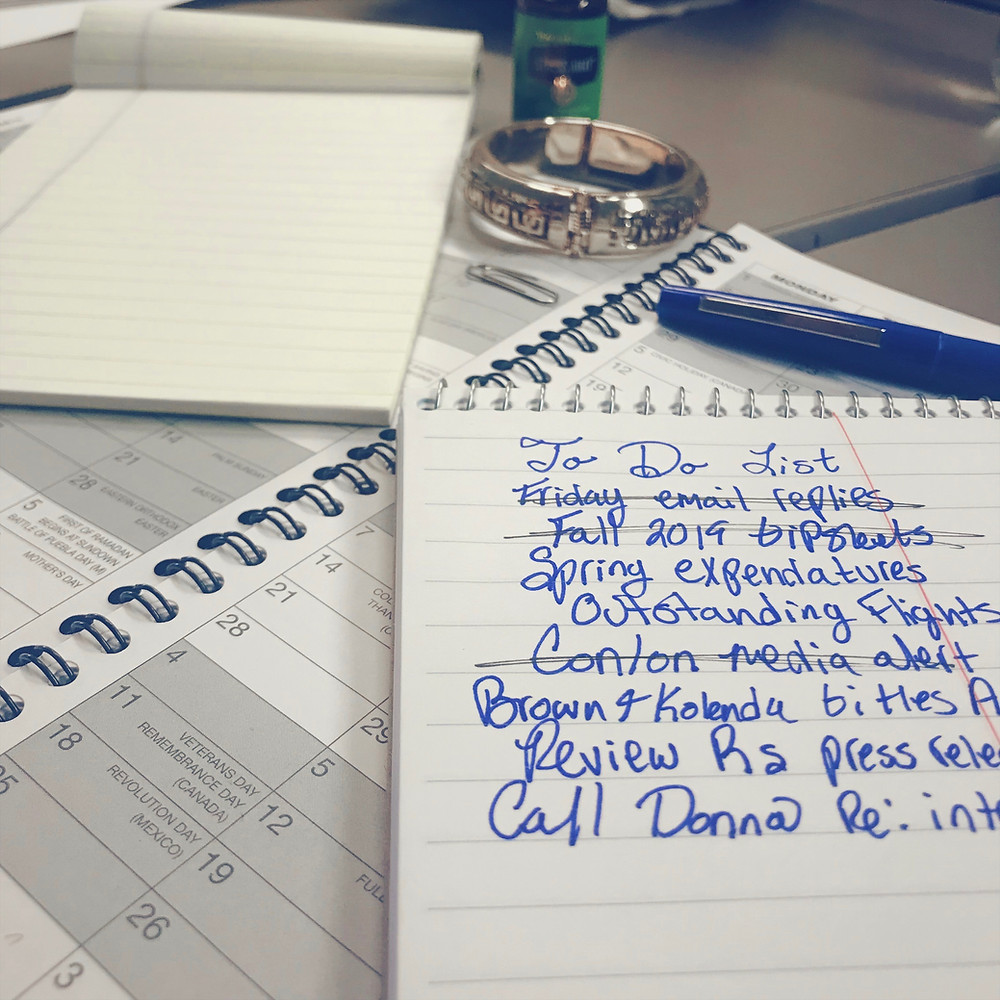 MONDAY
5
12
19
To Do List
Friday email replies
Fall 2019 tipsheets
Spring expendatures
Outstanding Flights
Con/on media alert
Brown & Kolenda titles A
Review Rs press rele
Call Donna Re: int
14
PALM SUNDAY
21
EASTER
28
EASTERN ORTHODOX
EASTER
5
FIRST OF RAMADAN
BEGINS AT SUNDOWN
BATTLE OF PUEBLA DAY (M)
MOTHER'S DAY
7
14
COL
THAN
(C
21
28
29
4
5
11
VETERANS DAY
REMEMBRANCE DAY
(CANADA)
12
18
REVOLUTION DAY
(MEXICO)
19
FULL
25
26
3